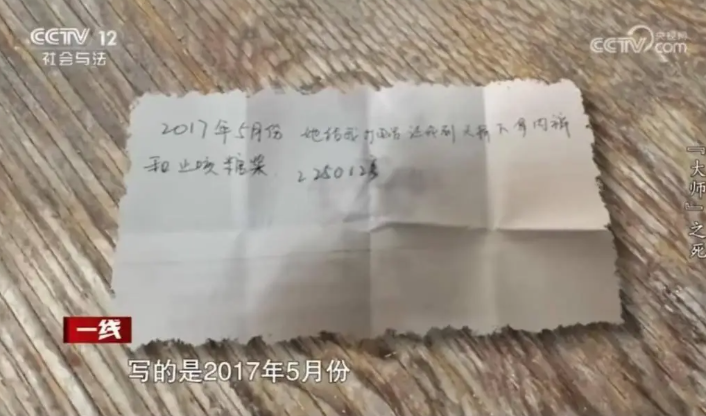 CCTV 12
社会与法
央视网
CCTV.com
2017年5月份 她给我打电话 让我到无锡下
和止咳糖浆. 225012
『大师』之死
一线
写的是2017年5月份